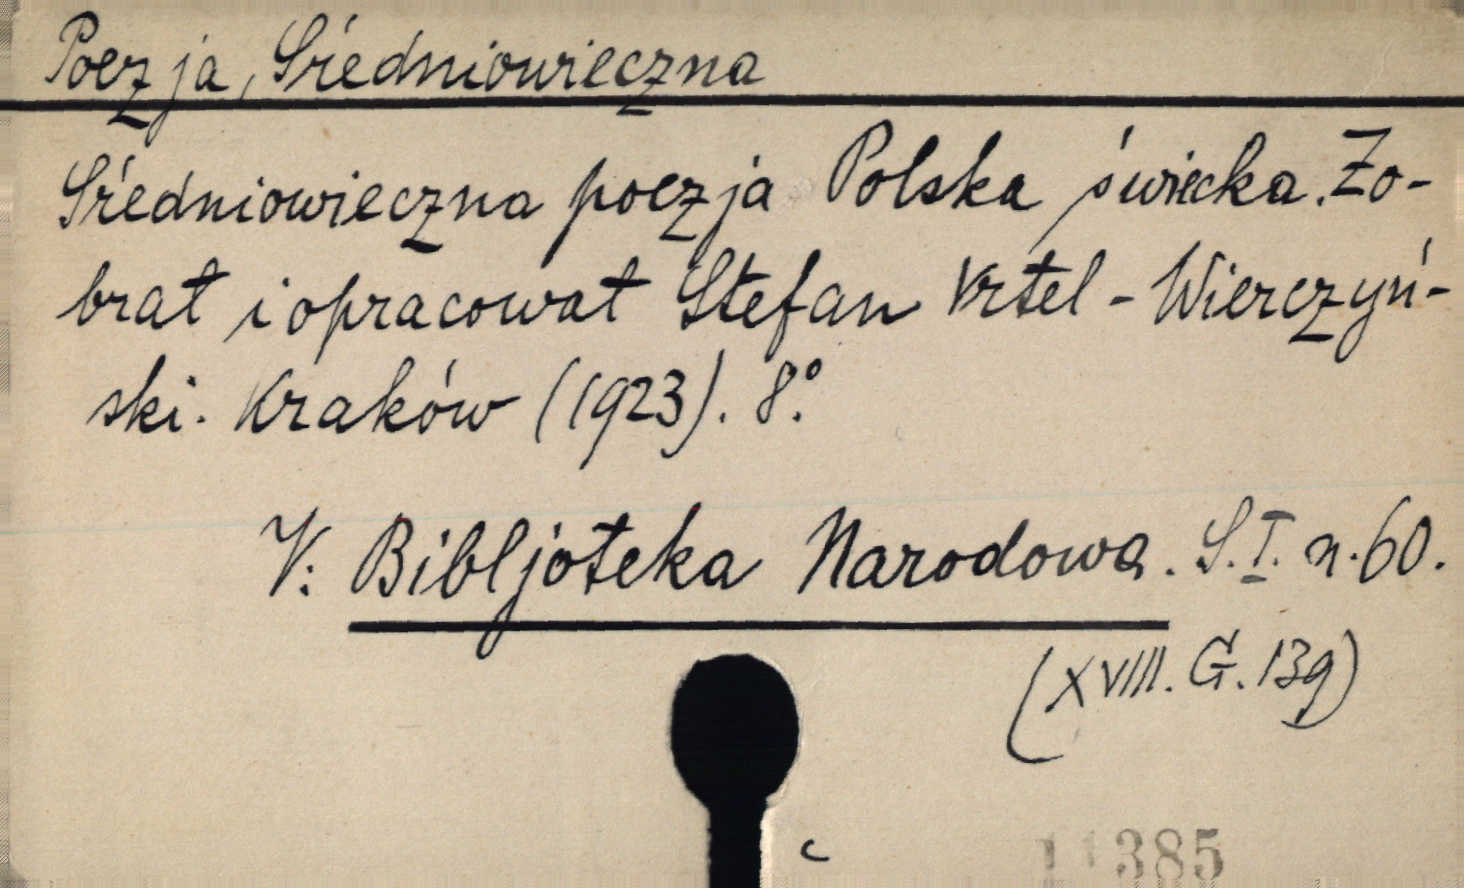 Poezja, Średniowieczna
Średniowieczna poezja Polska świecka. Zo-
brał i opracował Stefan Vrtel-Wierczyń-
ski. Kraków (1923). 8°.
V: Bibljoteka Narodowa. S. I. n. 60.
(XVIII. G. 139)
c
11385